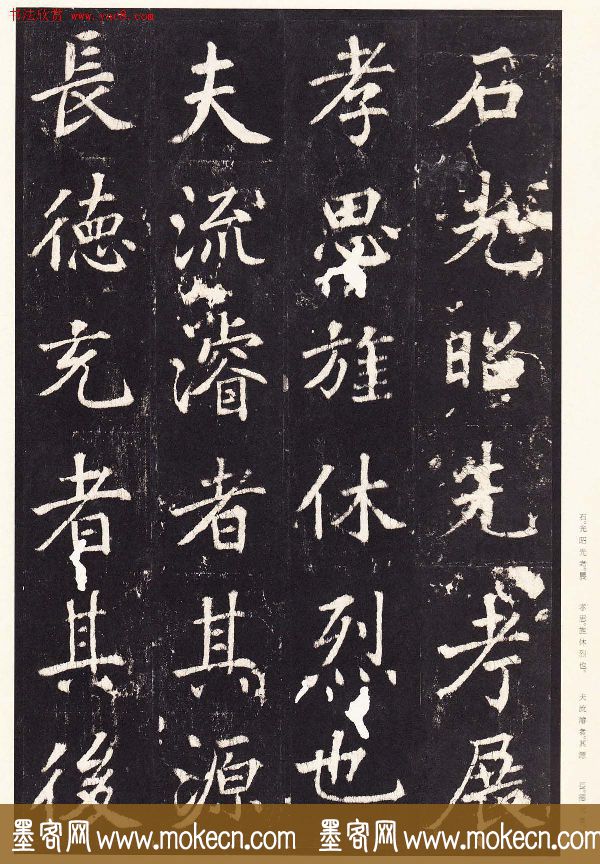 书法欣赏 www.yac8.com
石光昭先考展
孝思旌休烈也
夫流濬者其源
長德充者其後
石。光昭先考。展
孝思。旌休烈也。
夫流濬者。其源
墨客网 www.mokecn.com 墨客网 www.mokecn.com